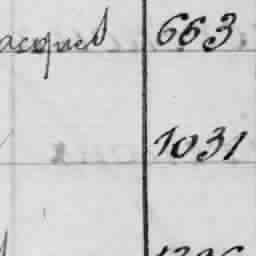 acques 663.
1031